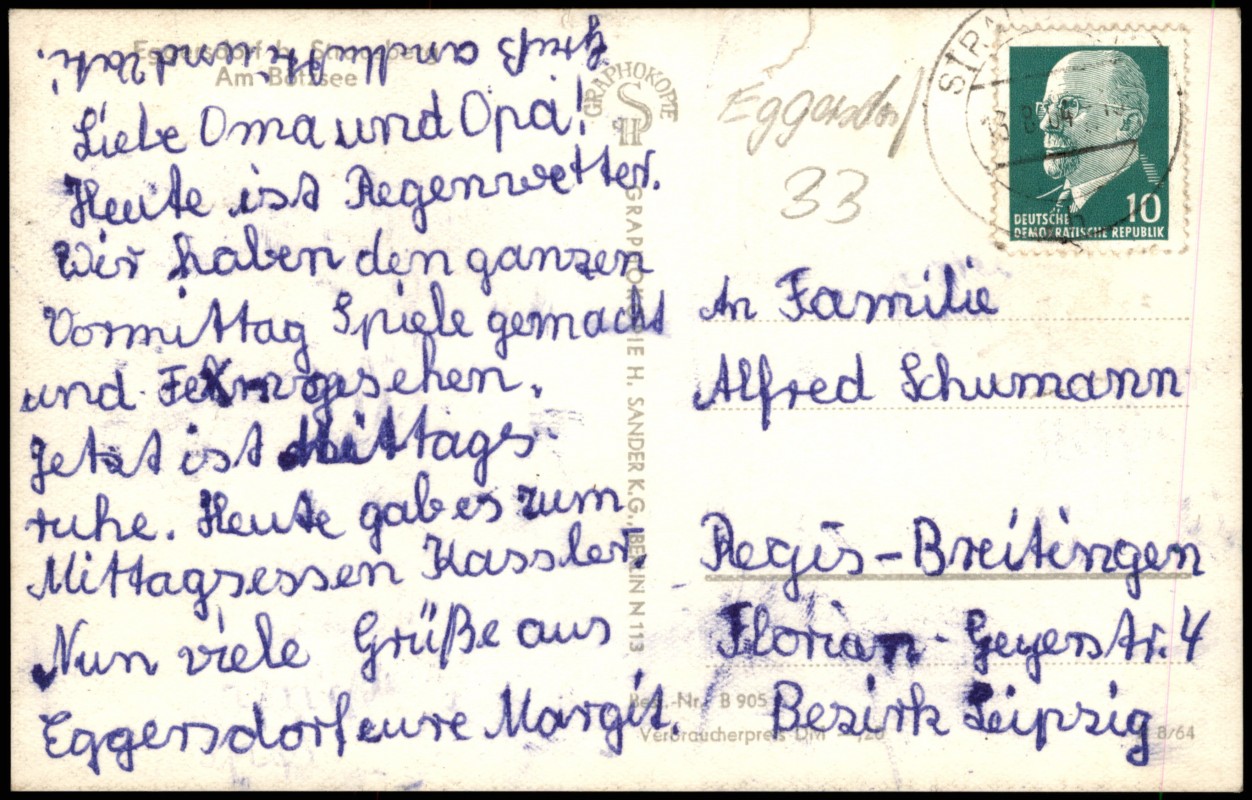 Eggersdorf b. Strausberg
Am Bötzsee
Liebe Oma und Opa!
Heute ist Regenwetter.
Wir haben den ganzen
Vormittag Spiele gemacht
und gesehen.
Jetzt ist Mittags-
ruhe. Heute gab es zum
Mittagsessen Kassler.
Nun viele Grüße aus
Eggersdorf eure Margit.
Gruß an und
GRAPHOKOPIE
GRAPHOKOPIE H. SANDER K.G., BERLIN N 113
Eggersdorf
33
13. 8. 64
10
DEUTSCHE
DEMOKRATISCHE REPUBLIK
An Familie
Alfred Schumann
Regis-Breitingen
Florian-Geyerstr. 4
Bezirk Leipzig
Best.-Nr. B 905
Verbraucherpreis DM ,20
8/64